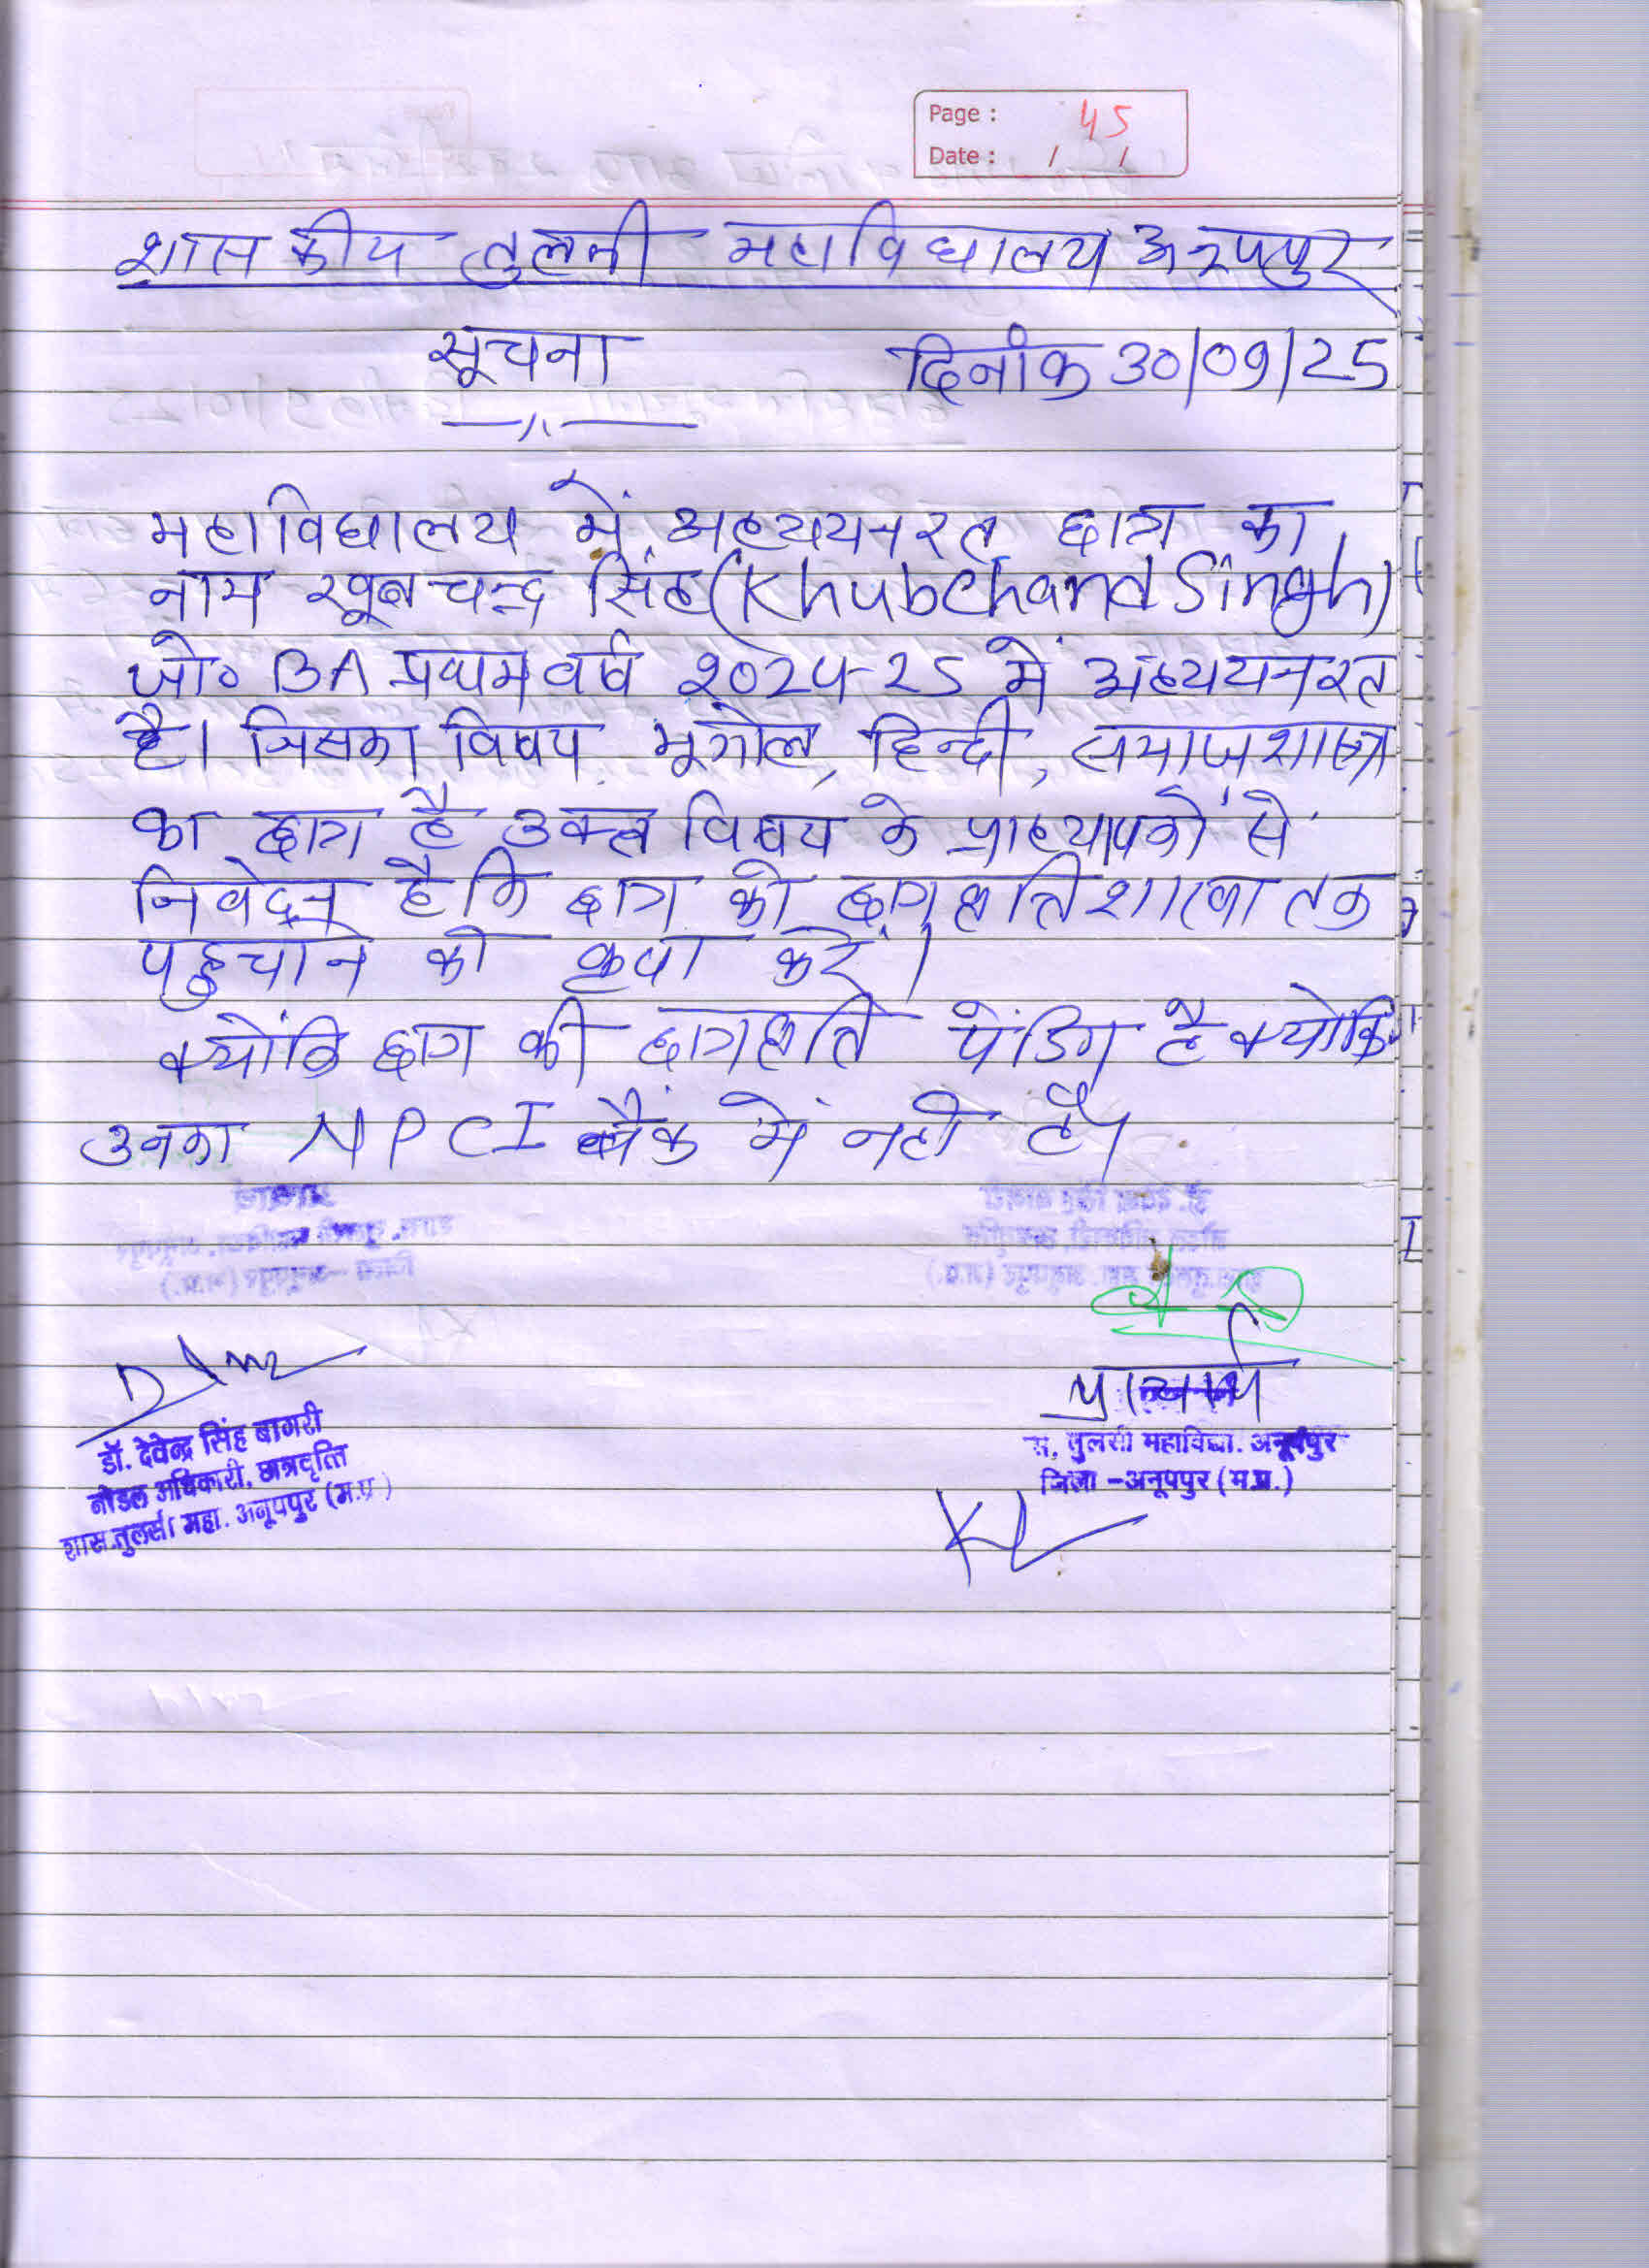 Page : 45
Date : / /
शासकीय तुलसी महाविद्यालय अनूपपुर
सूचना दिनांक 30/09/25
महाविद्यालय में अध्ययनरत छात्र का
नाम खूबचन्द्र सिंह (Khubchand Singh)
जो० BA प्रथम वर्ष 2024-25 में अध्ययनरत
है। जिसका विषय भूगोल, हिन्दी, समाजशास्त्र
का छात्र है उक्त विषय के प्राध्यापकों से
निवेदन है कि छात्र को छात्रवृत्ति शाखा तक
पहुचाने की कृपा करें।
क्योंकि छात्र की छात्रवृत्ति पेंडिंग है क्योकि
उनका NPCI बैंक में नही है।
प्राचार्य
तुलसी महाविद्या. अनूपपुर
जिला -अनूपपुर (म.प्र.)
डॉ. देवेन्द्र सिंह बागरी
नोडल अधिकारी, छात्रवृत्ति
शास.तुलसी महा. अनूपपुर (म.प्र.)